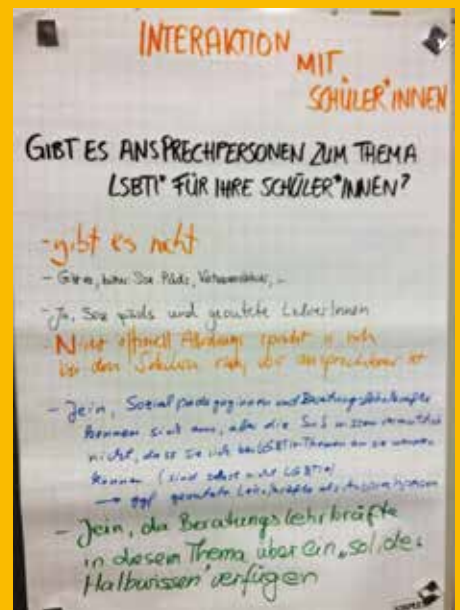 INTERAKTION
MIT
SCHÜLER*INNEN
GIBT ES ANSPRECHPERSONEN ZUM THEMA
LSBTI* FÜR IHRE SCHÜLER*INNEN?
- gibt es nicht
- Gibt es, Soz Päds, Vertrauenslehrer, ..
- Ja, Soz päds und geoutete LehrerInnen
- Nicht offiziell Allerdings spricht es sich
bei den Schülern rum, wer ansprechbar ist
- Jein, Sozialpädagoginnen und Beratungslehrkräfte
kennen sich aus, aber die SuS wissen vermutlich
nicht, dass sie sich bei LGBTI*-Themen an sie wenden
können (sind selbst nicht LGBTI*)
→ ggf. geoutete Lehrkräfte als
- Jein, da Beratungslehrkräfte
in diesem Thema über ein „solides
Halbwissen" verfügen